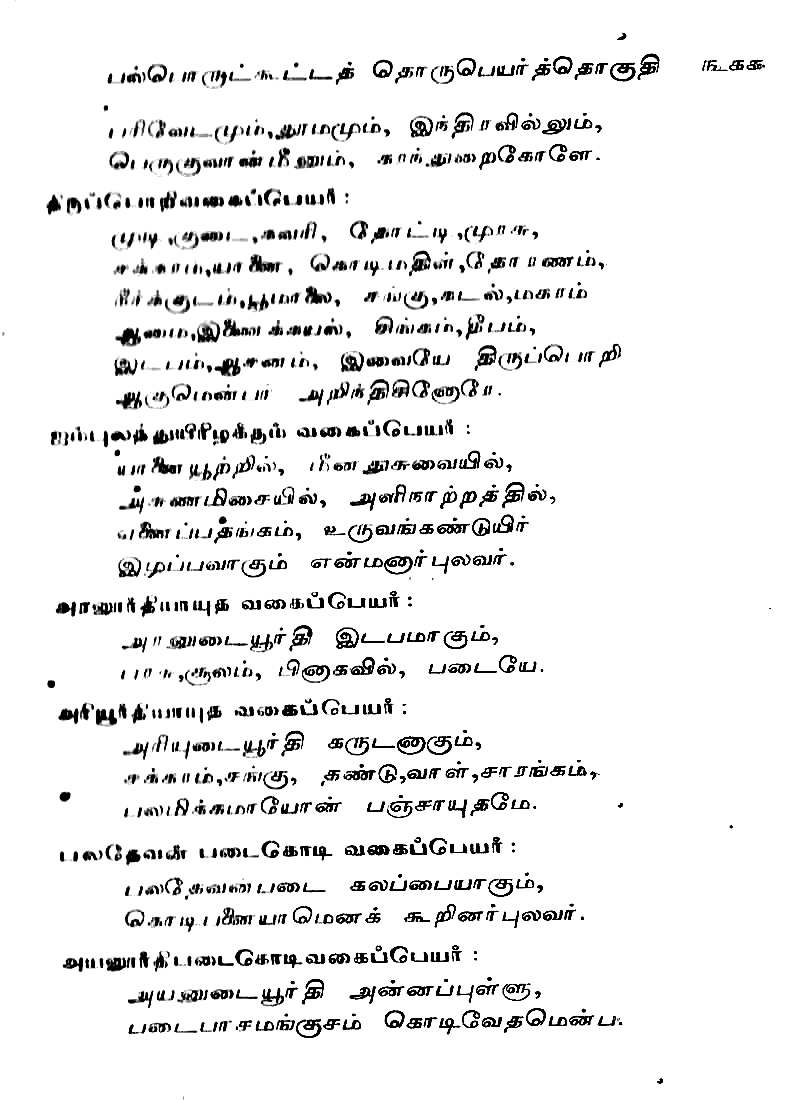 பல்பொருட்கூட்டத் தொருபெயர்த்தொகுதி ௩௧௧
பரிவேடமும்,தூமமும், இந்திரவில்லும்,
பெருகுவான்மீனும், காந்துறைகோளே.
திருப்பொறிவகைப்பெயர் :
முடி,குடை,கவரி, தோட்டி,முரசு,
சக்கரம்,யானை, கொடிமதிள்,தோரணம்,
நீர்க்குடம்,பூமாலை, சங்கு,கடல்,மகரம்
ஆமை,இணைக்கயல், சிங்கம்,தீபம்,
இடபம்,ஆசனம், இவையே திருப்பொறி
ஆகுமென்பர் அறிந்திசினோரே.
ஐம்புலத்துயிரிழக்கும் வகைப்பெயர் :
யானையூற்றில், மீனதுசுவையில்,
அசுணமிசையில், அளிநாற்றத்தில்,
வனைப்பதங்கம், உருவங்கண்டுயிர்
இழப்பவாகும் என்மனார்புலவர்.
அரனூர்தியாயுத வகைப்பெயர் :
அரனுடையூர்தி இடபமாகும்,
பரசு,சூலம், பினாகவில், படையே.
அரியூர்தியாயுத வகைப்பெயர் :
அரியுடையூர்தி கருடனாகும்,
சக்கரம்,சங்கு, தண்டு,வாள்,சாரங்கம்,
பலமிக்கமாயோன் பஞ்சாயுதமே.
பலதேவன் படைகொடி வகைப்பெயர் :
பலதேவன்படை கலப்பையாகும்,
கொடிபனையாமெனக் கூறினர்புலவர்.
அயனூர்திபடைகொடிவகைப்பெயர் :
அயனுடையூர்தி அன்னப்புள்ளு,
படைபாசமங்குசம் கொடிவேதமென்ப.